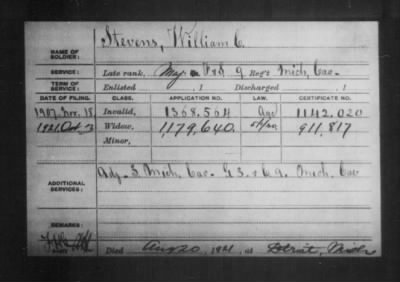 Stevens, William C.
NAME OF SOLDIER:
SERVICE: Late rank, Maj. F & S 9 Reg't Mich. Cav.
TERM OF SERVICE: Enlisted , 1 Discharged , 1
DATE OF FILING. CLASS. APPLICATION NO. LAW. CERTIFICATE NO.
1907. Nov. 18. Invalid, 1368.564 Age 1142.020
1921. Oct. 3 Widow, 1,179,640. 911,817
Minor,
ADDITIONAL SERVICES: Adj. 3 Mich. Cav. G 3. & C 9. Mich. Cav
REMARKS:
Died Aug 20, 1921, at Detroit, Mich